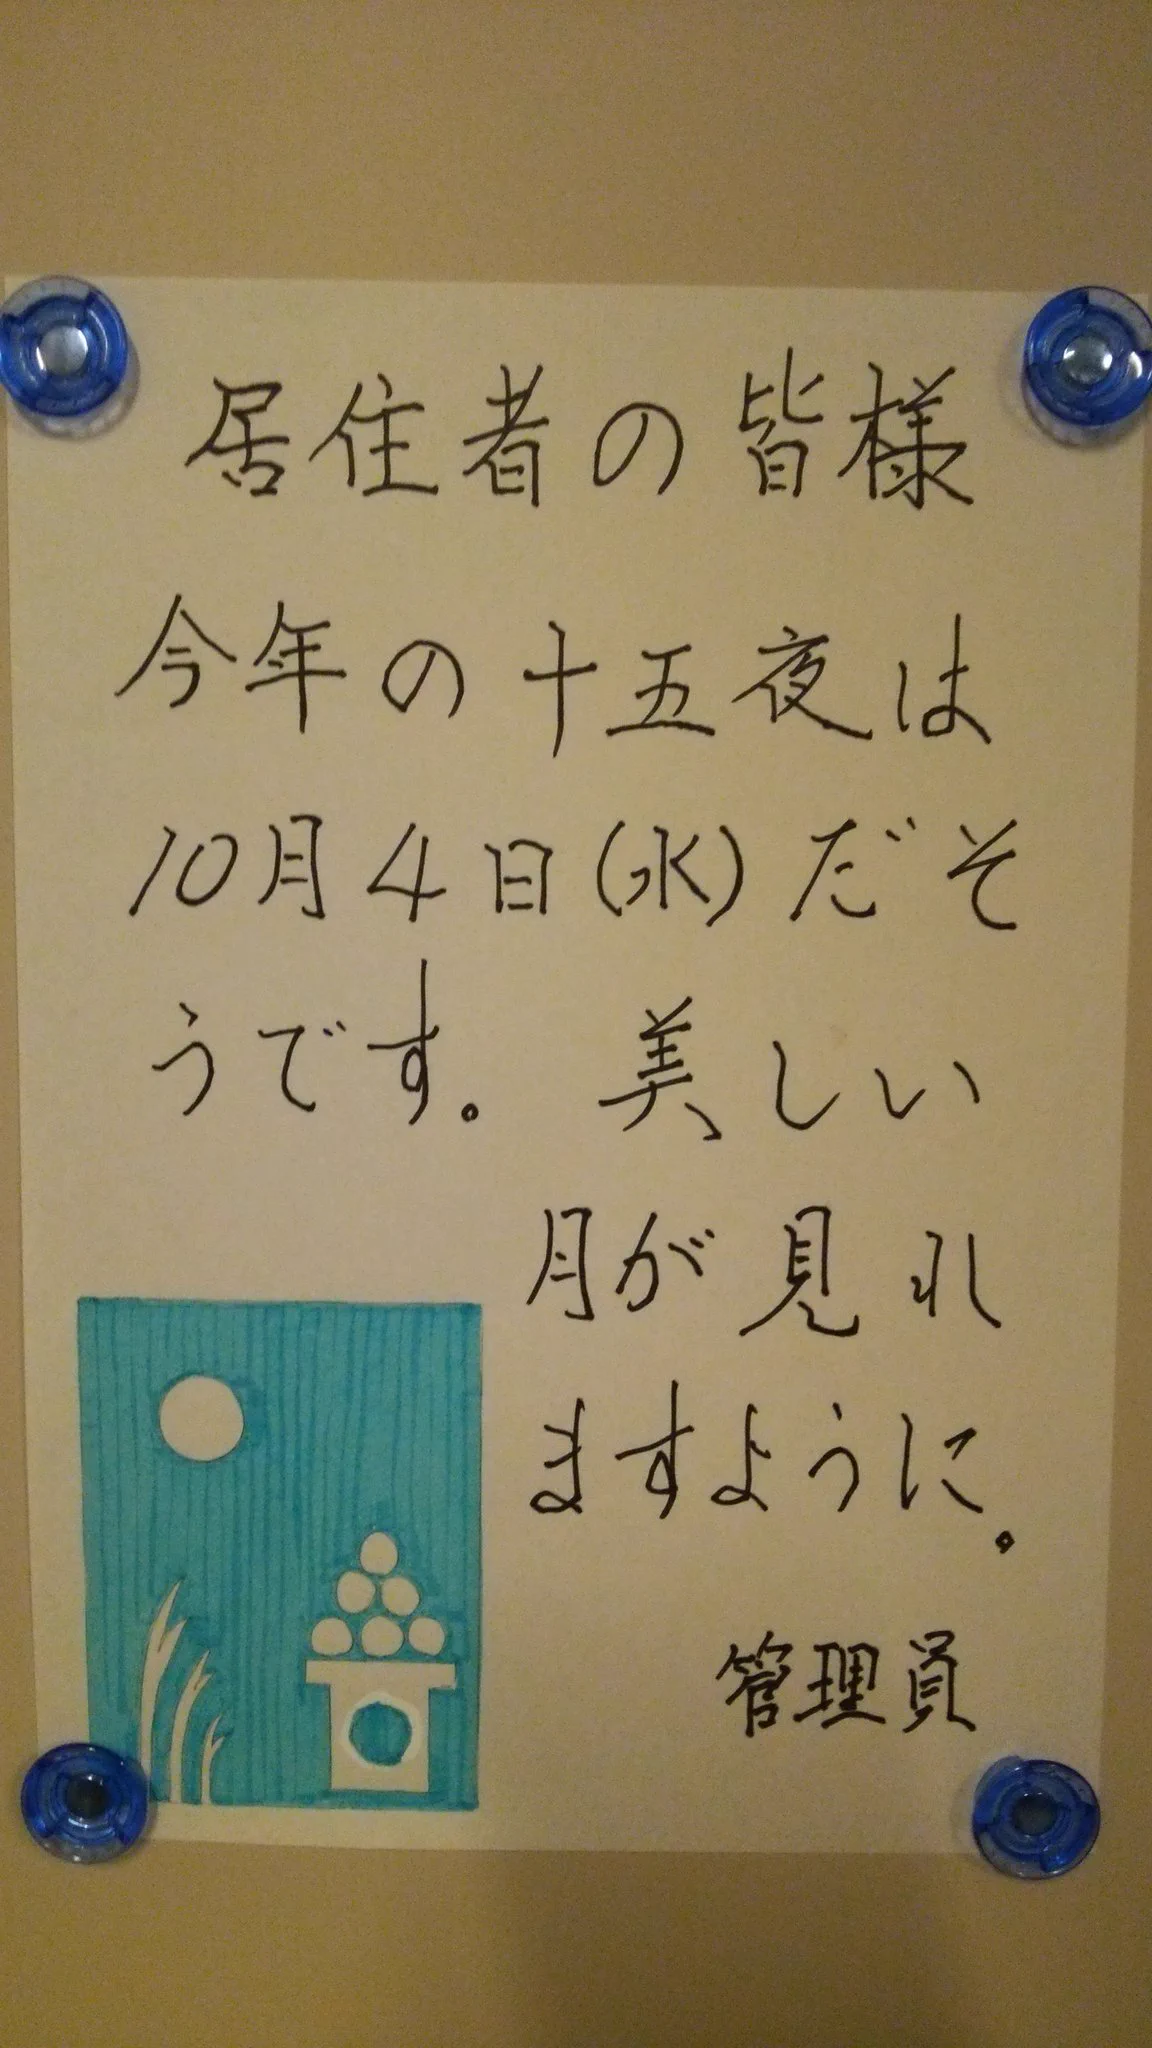 居住者の皆様
今年の十五夜は
10月4日(水)だそ
うです。美しい
月が見れ
ますように。
管理員